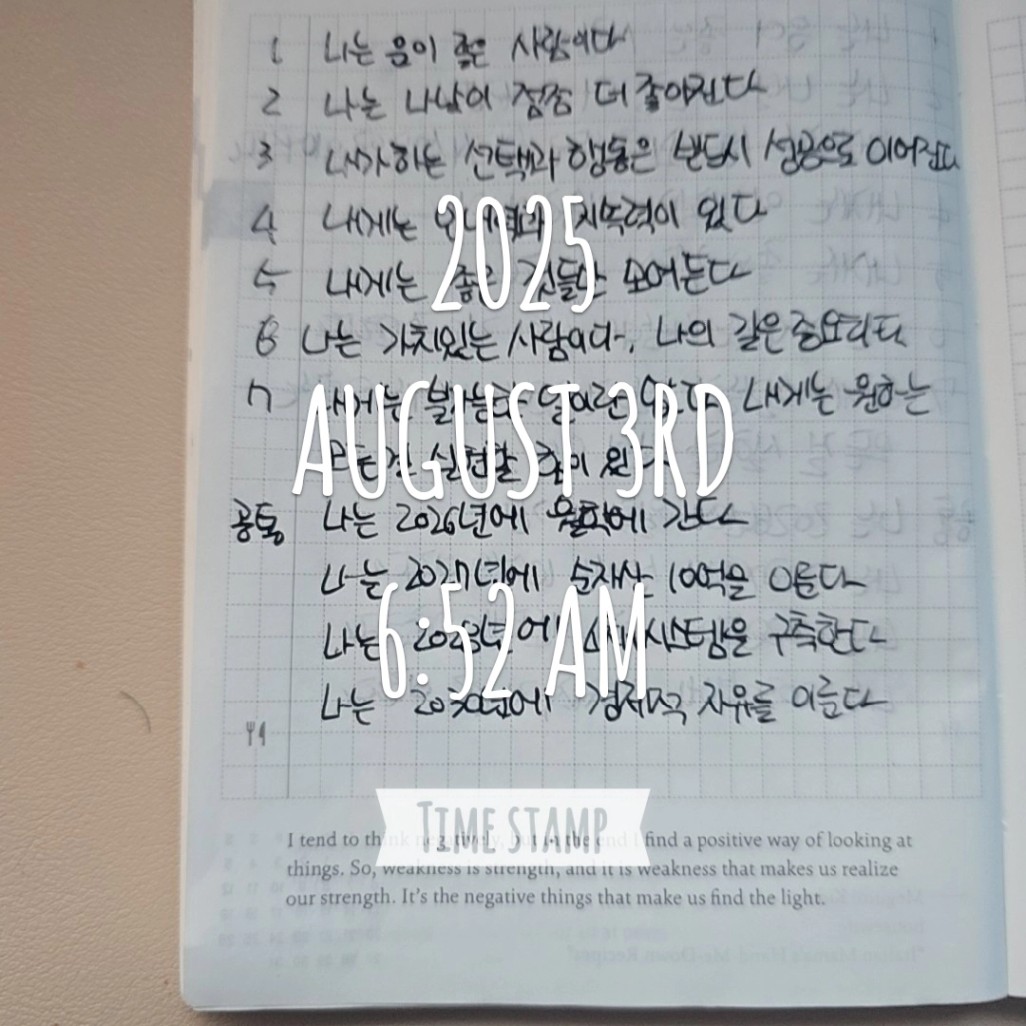 1 나는 운이 좋은 사람이다
2 나는 나날이 점점 더 좋아진다
3 내가하는 선택과 행동은 반드시 성공으로 이어진다
4 내게는 지속력이 있다
5 내게는 모여든다
6 나는 가치있는 사람이다. 나의 길은 중요하다
7 내게는 없다 내게는 원하는
모든걸 실현할 힘이 있다
2025
AUGUST 3RD
6:52 AM
공통 나는 2026년에 간다
나는 2027년에 순자산 10억을 이룬다
나는 시스템을 구축한다
나는 2030년에 경제적 자유를 이룬다
TIME STAMP
I tend to think negatively, but in the end I find a positive way of looking at
things. So, weakness is strength, and it is weakness that makes us realize
our strength. It's the negative things that make us find the light.